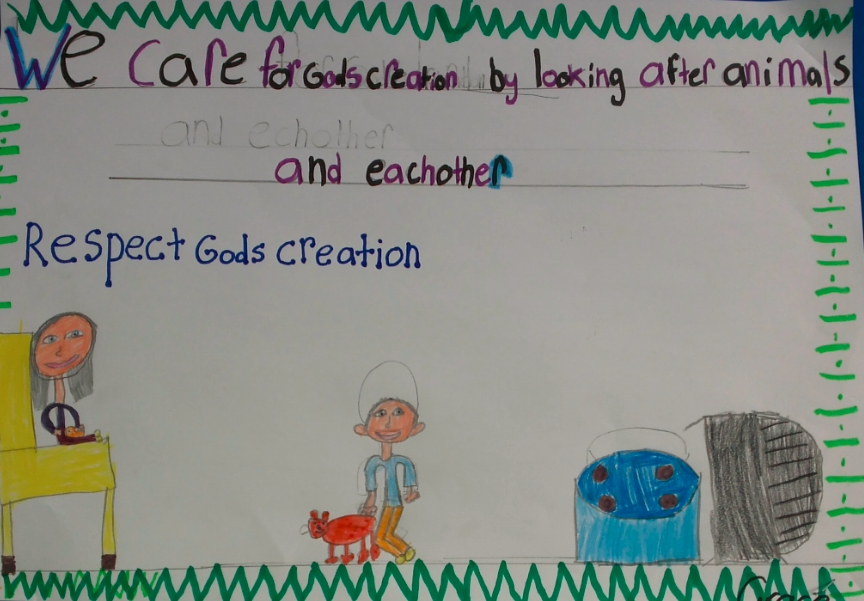 We Care for Gods creation by looking after animals
and echother
and eachother
Respect Gods creation
Grace